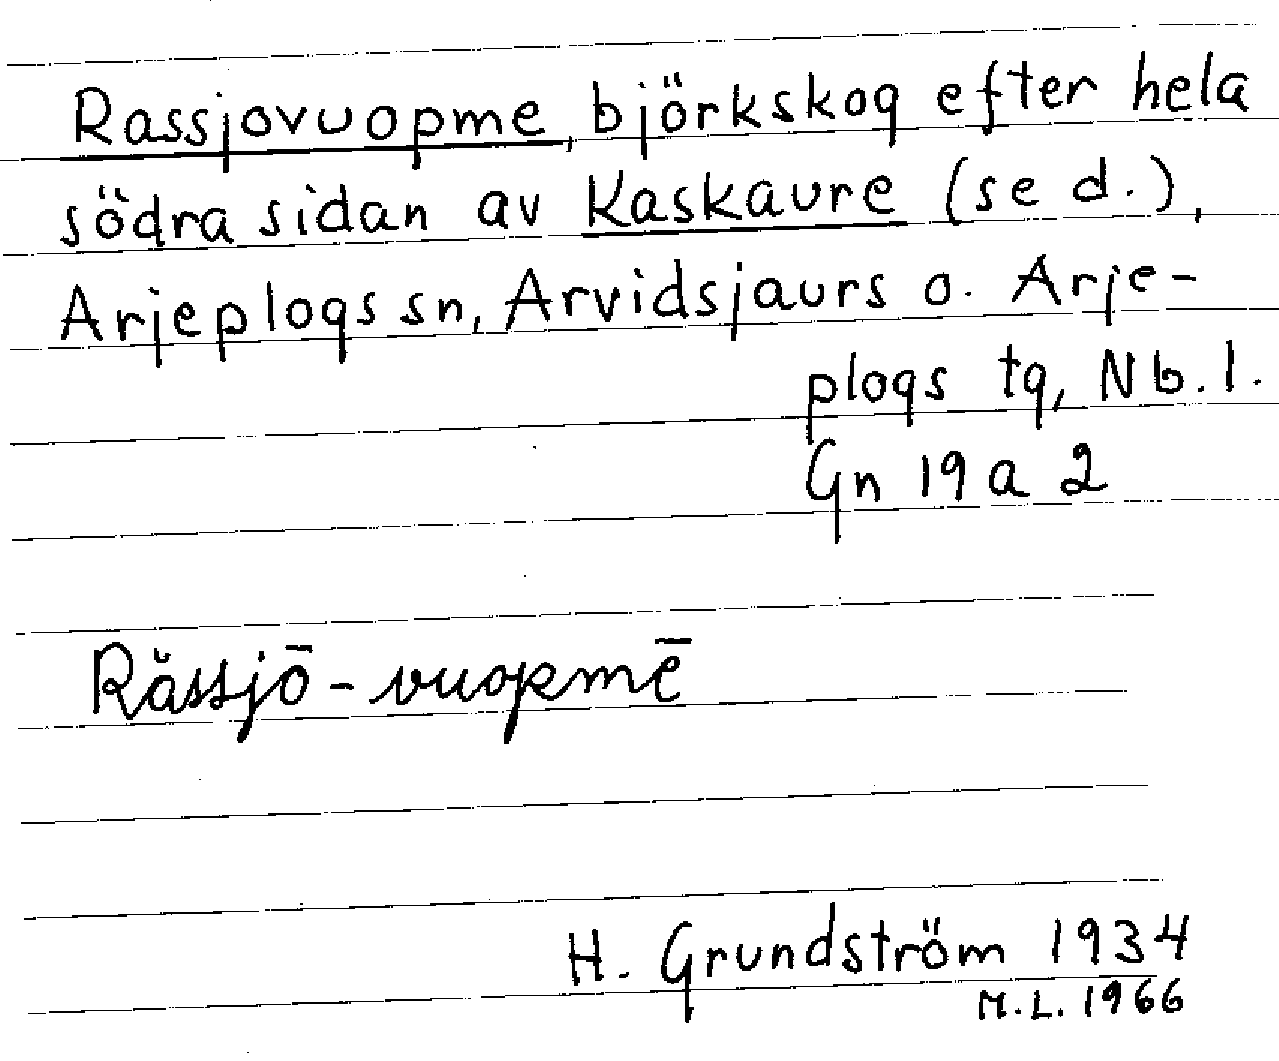 Rassjovuopme, björkskog efter hela
södra sidan av Kaskaure (se d.),
Arjeplogs sn, Arvidsjaurs o. Arje-
plogs tg, Nb. l.
Gn 19 a 2
Răssjō-vuopmē
H. Grundström 1934
M.L. 1966